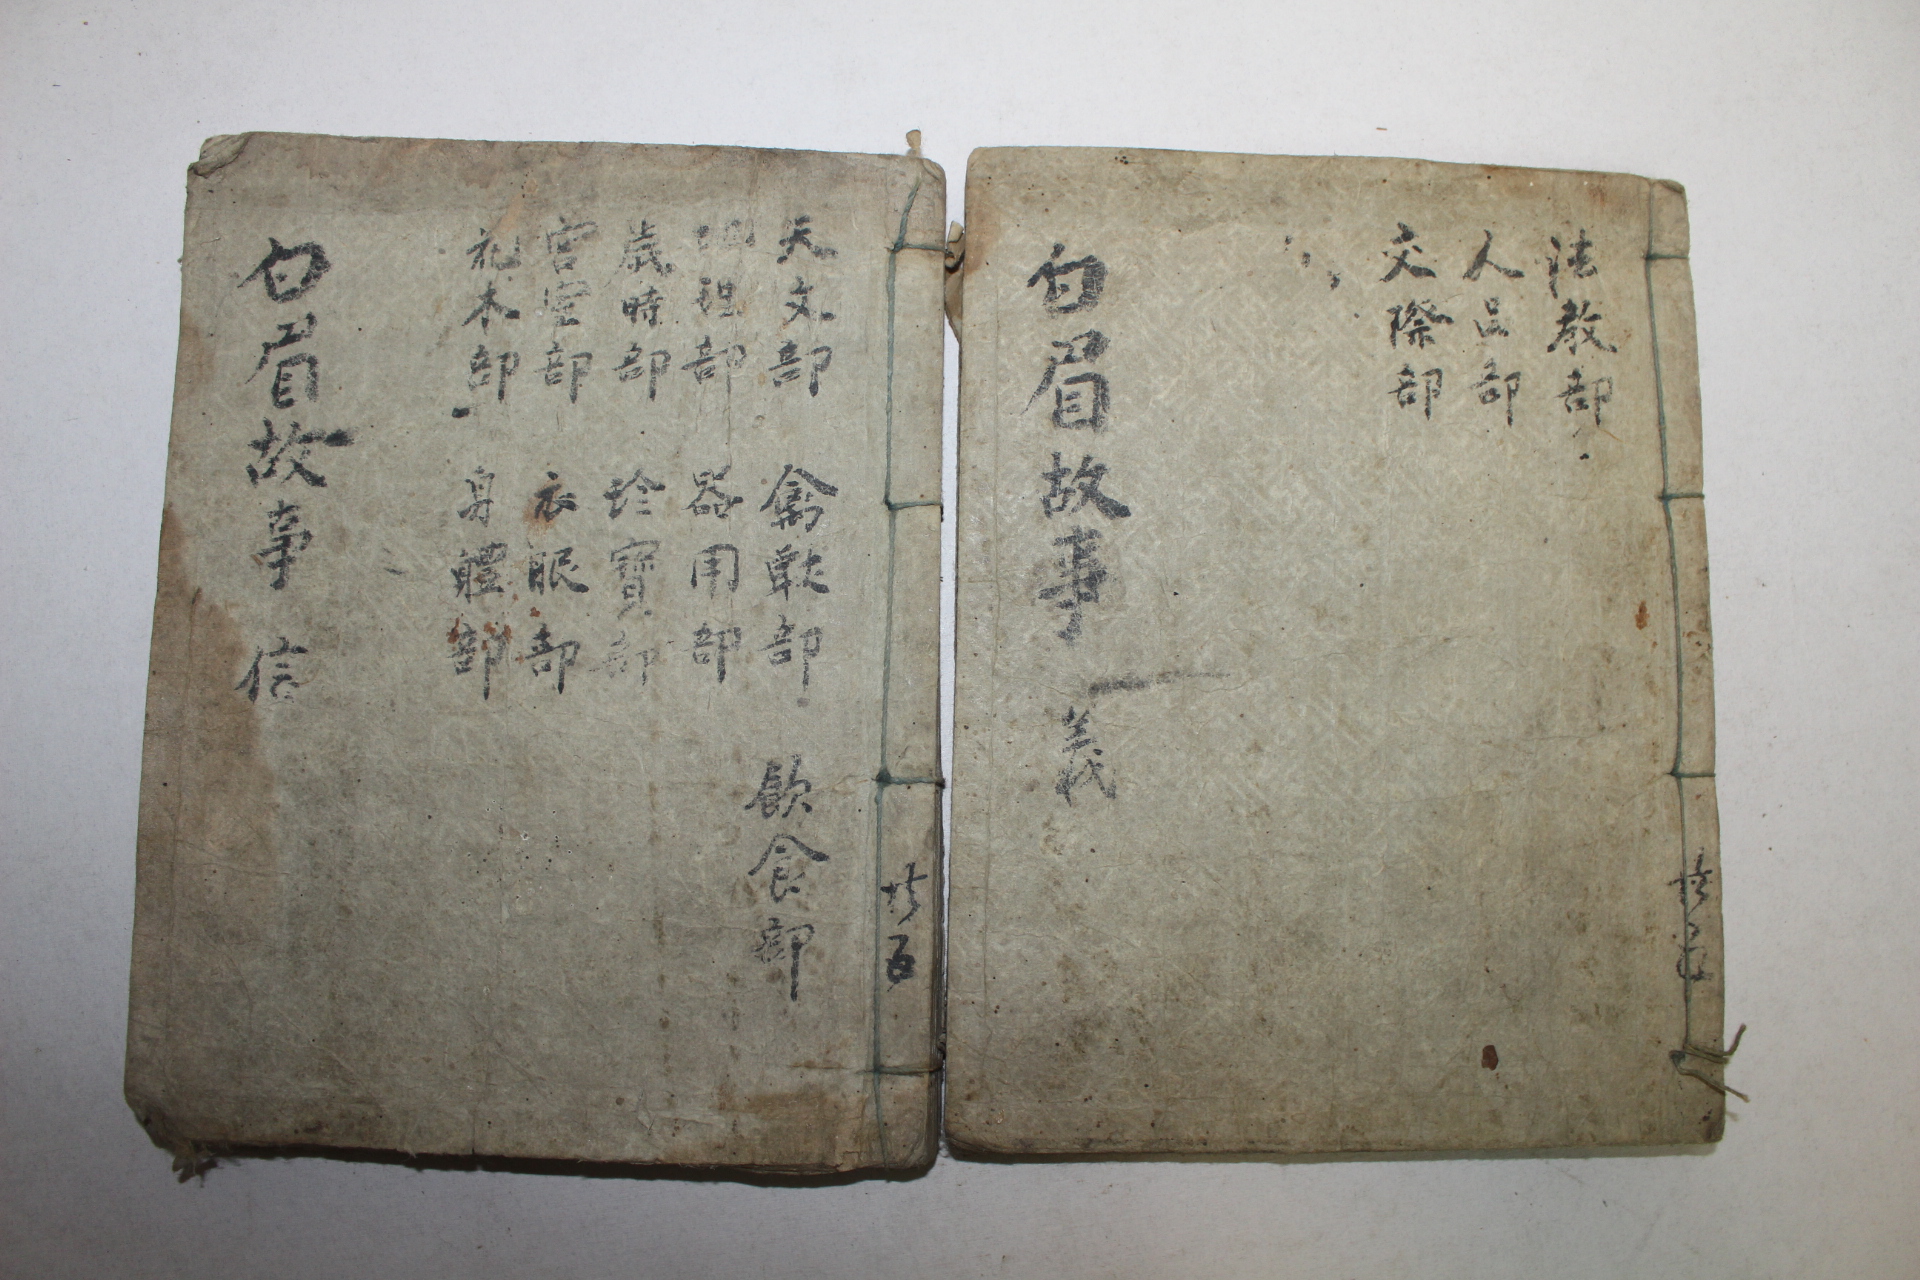 法教部
人品部
交際部
白眉故事 義
天文部 禽獸部 飲食部
部 器用部
歲時部 珍寶部
宮室部 衣服部
花木部 身體部
白眉故事 信
共五